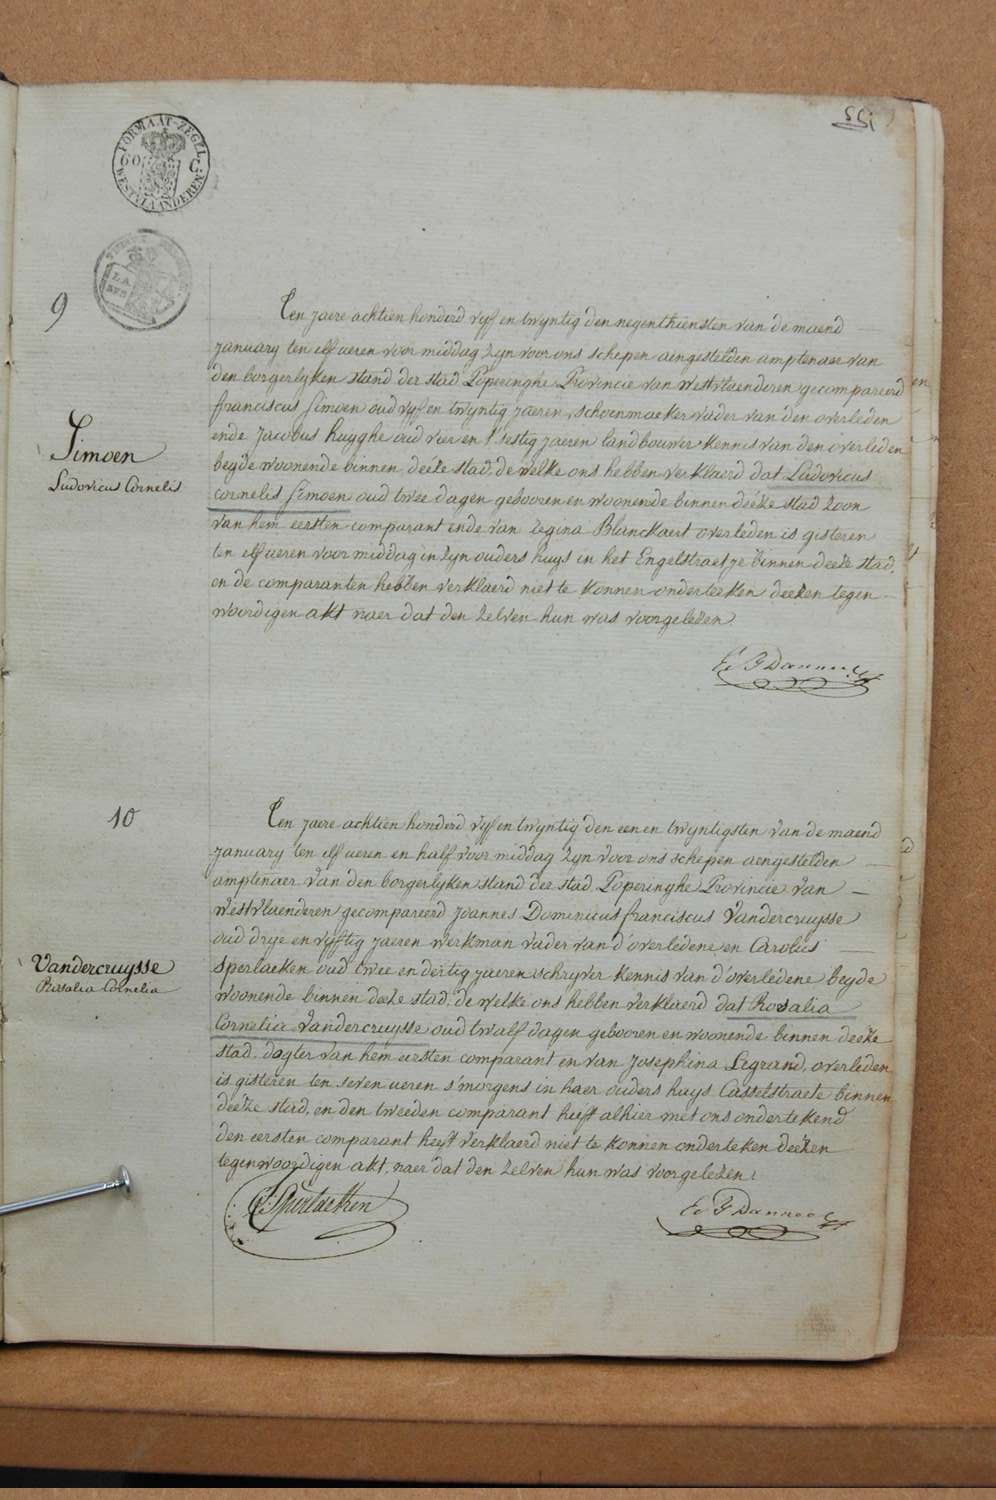 FORMAAT-ZEGEL
60 C
WESTVLAANDEREN
9
Simoen
Ludovicus Cornelis
Ten jaere achtien honderd vyf en twyntig den negenthiensten van de maend
january ten elf ueren voor middag zyn voor ons schepen aengestelden amptenaer van
den borgerlyken stand der stad Poperinghe Provincie van Westvlaenderen gecompareerd
franciscus Simoen oud vyf en twyntig jaeren, schoenmaeker vader van den overleden
ende Jacobus huyghe oud vier en t'sestig jaeren landbouwer kennis van den overleden
beyde woonende binnen deeze stad, de welke ons hebben verklaerd dat Ludovicus
cornelis Simoen oud twee dagen gebooren en woonende binnen deeze stad zoon
van hem eersten comparant ende van regina Blanckaert overleden is gisteren
ten elf ueren voor middag in zyn ouders huys in het Engelstraetje binnen deeze stad,
en de comparanten hebben verklaerd niet te konnen onderteeken deezen tegen
woordigen akt naer dat den zelven hun was voorgelezen
10
Vandercruysse
Rosalia Cornelia
Ten jaere achtien honderd vyf en twyntig den eenen twyntigsten van de maend
january ten elf ueren en half voor middag zyn voor ons schepen aengestelden
amptenaer van den borgerlyken stand der stad Poperinghe Provincie van
Westvlaenderen gecompareerd Joannes Dominicus franciscus Vandercruysse
oud drye en vyftig jaeren werkman vader van d'overledene en Carolus
Sperlaeken oud twee en dertig jaeren schryver kennis van d'overledene beyde
woonende binnen deeze stad, de welke ons hebben verklaerd dat Rosalia
Cornelia Vandercruysse oud twalf dagen gebooren en woonende binnen deeze
stad, dogter van hem eersten comparant en van Josephina Legrand, overleden
is gisteren ten seven ueren s'morgens in haer ouders huys Casselstraete binnen
deeze stad, en den tweeden comparant heeft alhier met ons ondertekend
den eersten comparant heeft verklaerd niet te konnen onderteken deezen
tegenwoordigen akt, naer dat den zelven hun was voorgelezen
C: Sperlaeken